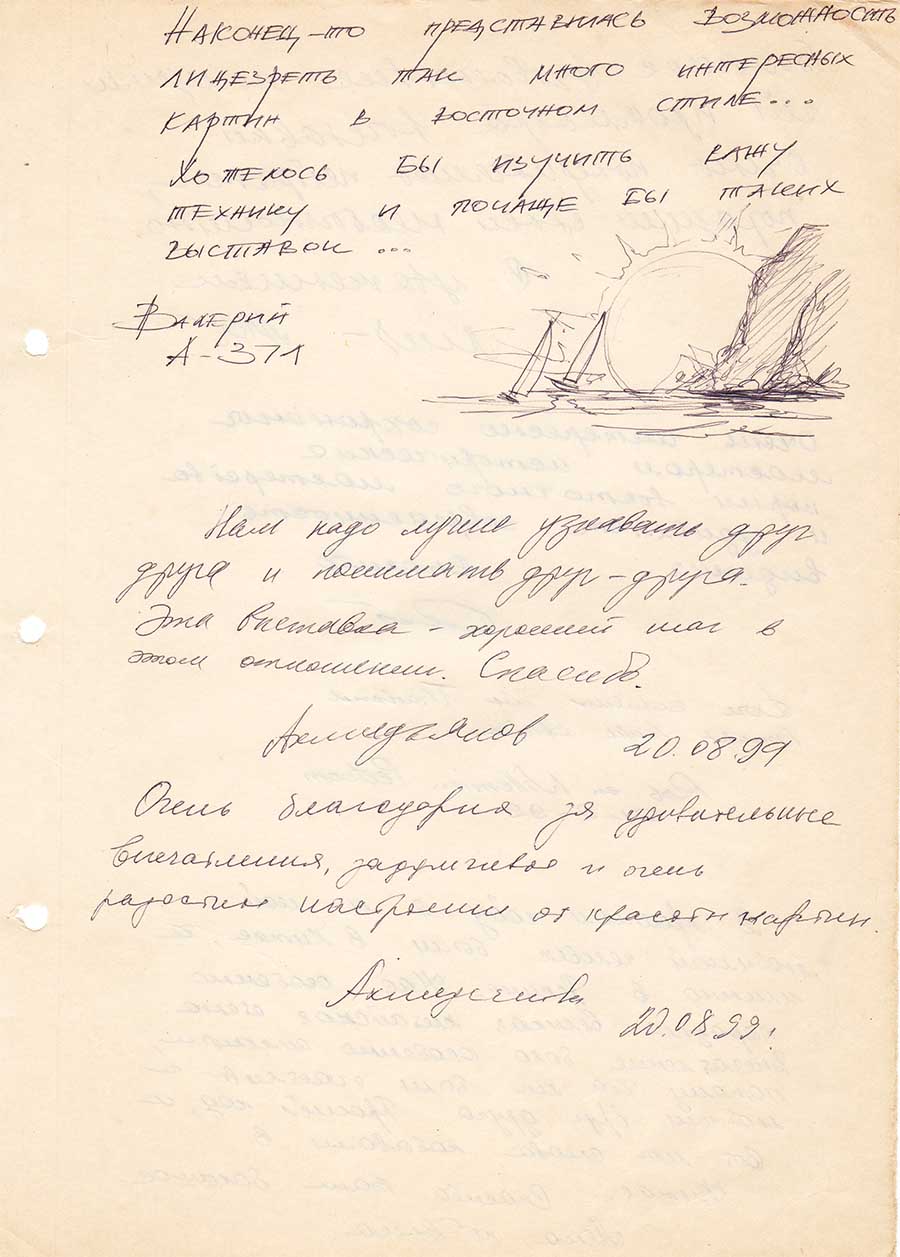 Наконец-то представилась возможность
лицезреть так много интересных
картин в восточном стиле...
Хотелось бы изучить вашу
технику и почаще бы таких
выставок ...
Валерий
А-371
Нам надо лучше узнавать друг
друга и понимать друг-друга.
Эта выставка – хороший шаг в
этом отношении. Спасибо.
Ахмедьянов 20.08.99
Очень благодарна за удивительные
впечатления, задумчивое и очень
радостное настроение от красоты картин.
20.08.99г.